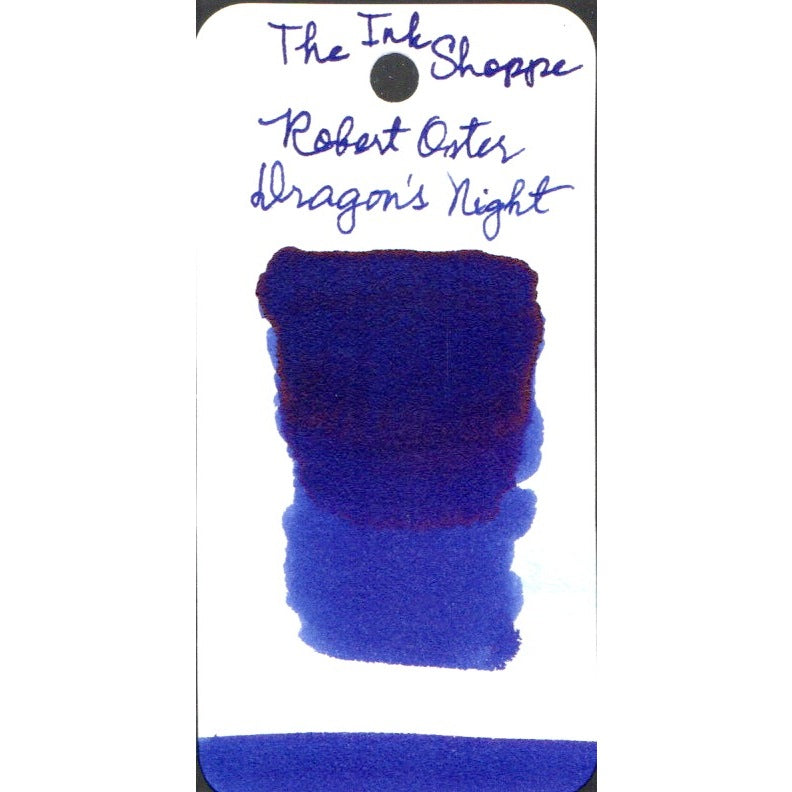 The Ink Shoppe
Robert Oster
Dragon's Night